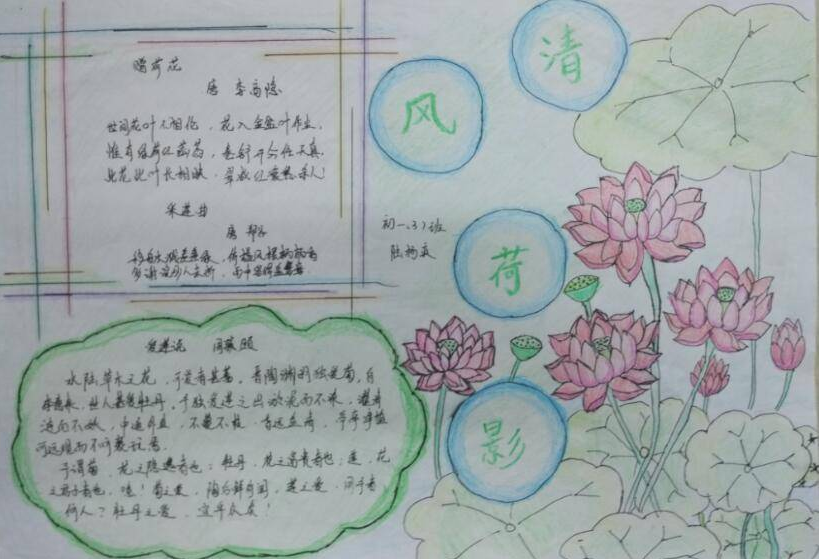 赠荷花
唐 李商隐
世间花叶不相伦，花入金盆叶作尘。
惟有绿荷红菡萏，卷舒开合任天真。
此花此叶长相映，翠减红衰愁杀人！
采莲曲
唐
爱莲说 周敦颐
水陆草木之花，可爱者甚蕃。晋陶渊明独爱菊，自
来，世人甚爱牡丹。予独爱莲之出淤泥而不染，濯清
涟而不妖，中通外直，不蔓不枝，香远益清，亭亭净植
可远观而不可亵玩焉
予谓菊，花之隐逸者也；牡丹，花之富贵者也；莲，花
之君子者也。噫！菊之爱，陶后鲜有闻，莲之爱，同予者
何人？牡丹之爱，宜乎众矣！
清
风
荷
影
初一、3）班